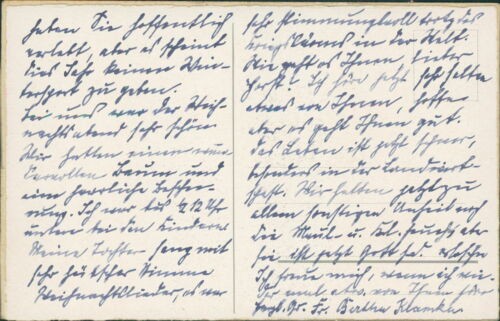 haben Sie hoffentlich
erlebt, aber es scheint
dies Jahr keinen Win-
tersport zu geben.
Bei uns war der Weih-
nachtsabend sehr schön
Wir hatten einen
Baum und
eine herrliche Besche-
rung. Ich war bis 1/2 12 Uhr
unten bei den Kindern
Meine Tochter sang mit
sehr hübscher Stimme
Weihnachtslieder, es war
sehr stimmungsvoll trotz des
Kriegslärms in der Welt.
Wie geht es Ihnen, lieber
Horst? Ich höre jetzt sehr selten
etwas von Ihnen, hoffe
aber es geht Ihnen gut.
Das Leben ist jetzt schwer,
besonders in der Landwirt-
schaft. Wir hatten jetzt zu
allem sonstigen Unheil noch
die Maul- u. Kl. seuche, aber
sie ist jetzt Gott sd. erloschen
Ich freue mich, wenn ich wie-
der mal etw. von Ihnen höre
Hrzl. Gr. Fr. Bertha